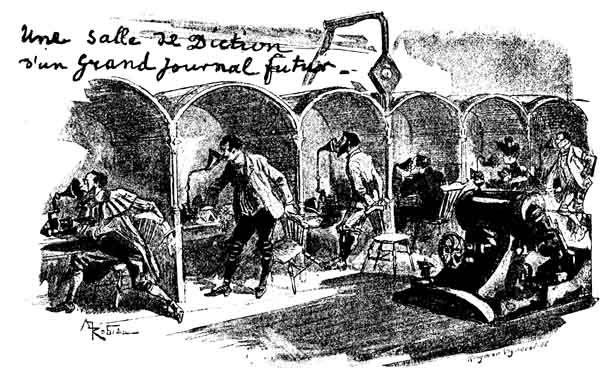 Une salle de Diction
d'un Grand Journal futur_
A Robida